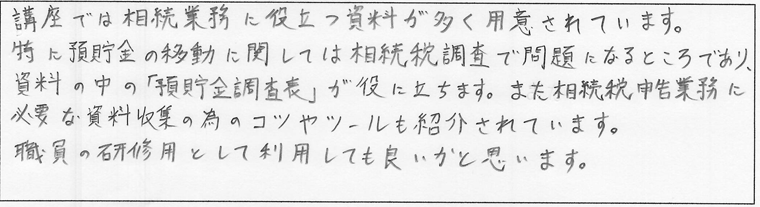 講座では相続業務に役立つ資料が多く用意されています。
特に預貯金の移動に関しては相続税調査で問題になるところであり、
資料の中の「預貯金調査表」が役に立ちます。また相続税申告業務に
必要な資料収集の為のコツやツールも紹介されています。
職員の研修用として利用しても良いかと思います。